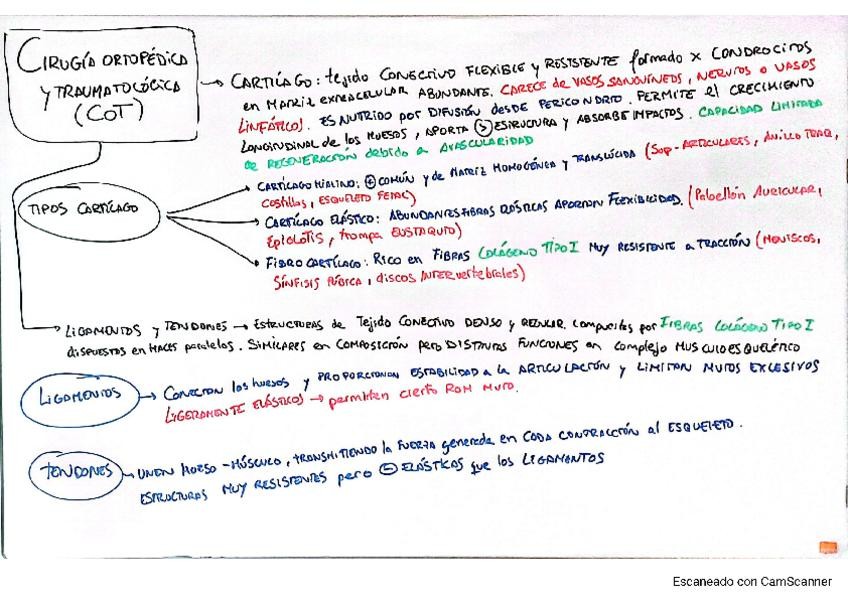 CIRUGÍA ORTOPÉDICA
Y TRAUMATOLÓGICA
(COT)
→ CARTÍLAGO: tejido CONECTIVO FLEXIBLE y RESISTENTE formado x CONDROCITOS
en MATRIZ EXTRACELULAR ABUNDANTE. CARECE de VASOS SANGUÍNEOS, NERVIOS O VASOS
LINFÁTICOS. ES NUTRIDO por DIFUSIÓN desde PERICONDRIO. PERMITE el CRECIMIENTO
LONGITUDINAL de los HUESOS, APORTA ESTRUCTURA y ABSORBE IMPACTOS. CAPACIDAD LIMITADA
de REGENERACIÓN debido a AVASCULARIDAD
TIPOS CARTÍLAGO
CARTÍLAGO HIALINO: ⊕ COMÚN y de MATRIZ HOMOGÉNEA y TRANSLÚCIDA (SUP-ARTICULARES, ANILLO TRAQ,
Costillas, ESQUELETO FETAL)
CARTÍLAGO ELÁSTICO: ABUNDANTES FIBRAS ELÁSTICAS APORTAN FLEXIBILIDAD. (Pabellón AURICULAR,
EPIGLOTIS, trompa EUSTAQUIO)
FIBROCARTÍLAGO: RICO en FIBRAS COLÁGENO TIPO I MUY RESISTENTE a TRACCIÓN (MENISCOS,
SÍNFISIS PÚBICA, discos INTERVERTEBRALES)
→ LIGAMENTOS y TENDONES → ESTRUCTURAS de Tejido CONECTIVO DENSO y REGULAR. compuestas por FIBRAS COLÁGENO TIPO I
dispuestos en HACES paralelos. SIMILARES en COMPOSICIÓN pero DISTINTAS FUNCIONES en complejo MUSCULOESQUELÉTICO
LIGAMENTOS → CONECTAN los huesos y PROPORCIONAN ESTABILIDAD a LA ARTICULACIÓN y LIMITAN MVTOS EXCESIVOS
LIGERAMENTE ELÁSTICOS → permiten cierto ROM MVTO.
TENDONES → UNEN HUESO - MÚSCULO, TRANSMITIENDO la FUERZA generada en CADA CONTRACCIÓN al ESQUELETO.
ESTRUCTURAS MUY RESISTENTES pero ⊖ ELÁSTICAS que los LIGAMENTOS
Escaneado con CamScanner